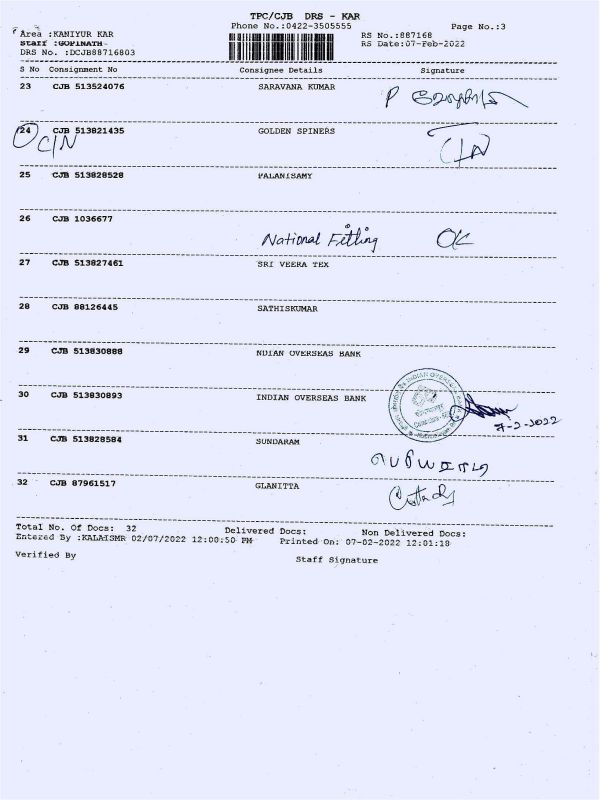 TPC/CJB DRS - KAR
Phone No.:0422-3505555
Page No.:3
Area :KANIYUR KAR
RS No.:887168
Staff :GOPINATH
RS Date:07-Feb-2022
DRS No. :DCJB88716803
S No Consignment No Consignee Details Signature
23 CJB 513524076 SARAVANA KUMAR P
24 CJB 513821435 GOLDEN SPINERS
C/N
25 CJB 513828528 PALANISAMY
26 CJB 1036677
National Fitting OK
27 CJB 513827461 SRI VEERA TEX
28 CJB 88126445 SATHISKUMAR
29 CJB 513830888 NDIAN OVERSEAS BANK
30 CJB 513830893 INDIAN OVERSEAS BANK
INDIAN OVERSEAS BANK
7-2-2022
31 CJB 513828584 SUNDARAM
32 CJB 87961517 GLANITTA
Total No. Of Docs: 32 Delivered Docs: Non Delivered Docs:
Entered By :KALAISMR 02/07/2022 12:00:50 PM Printed On: 07-02-2022 12:01:18
Verified By Staff Signature